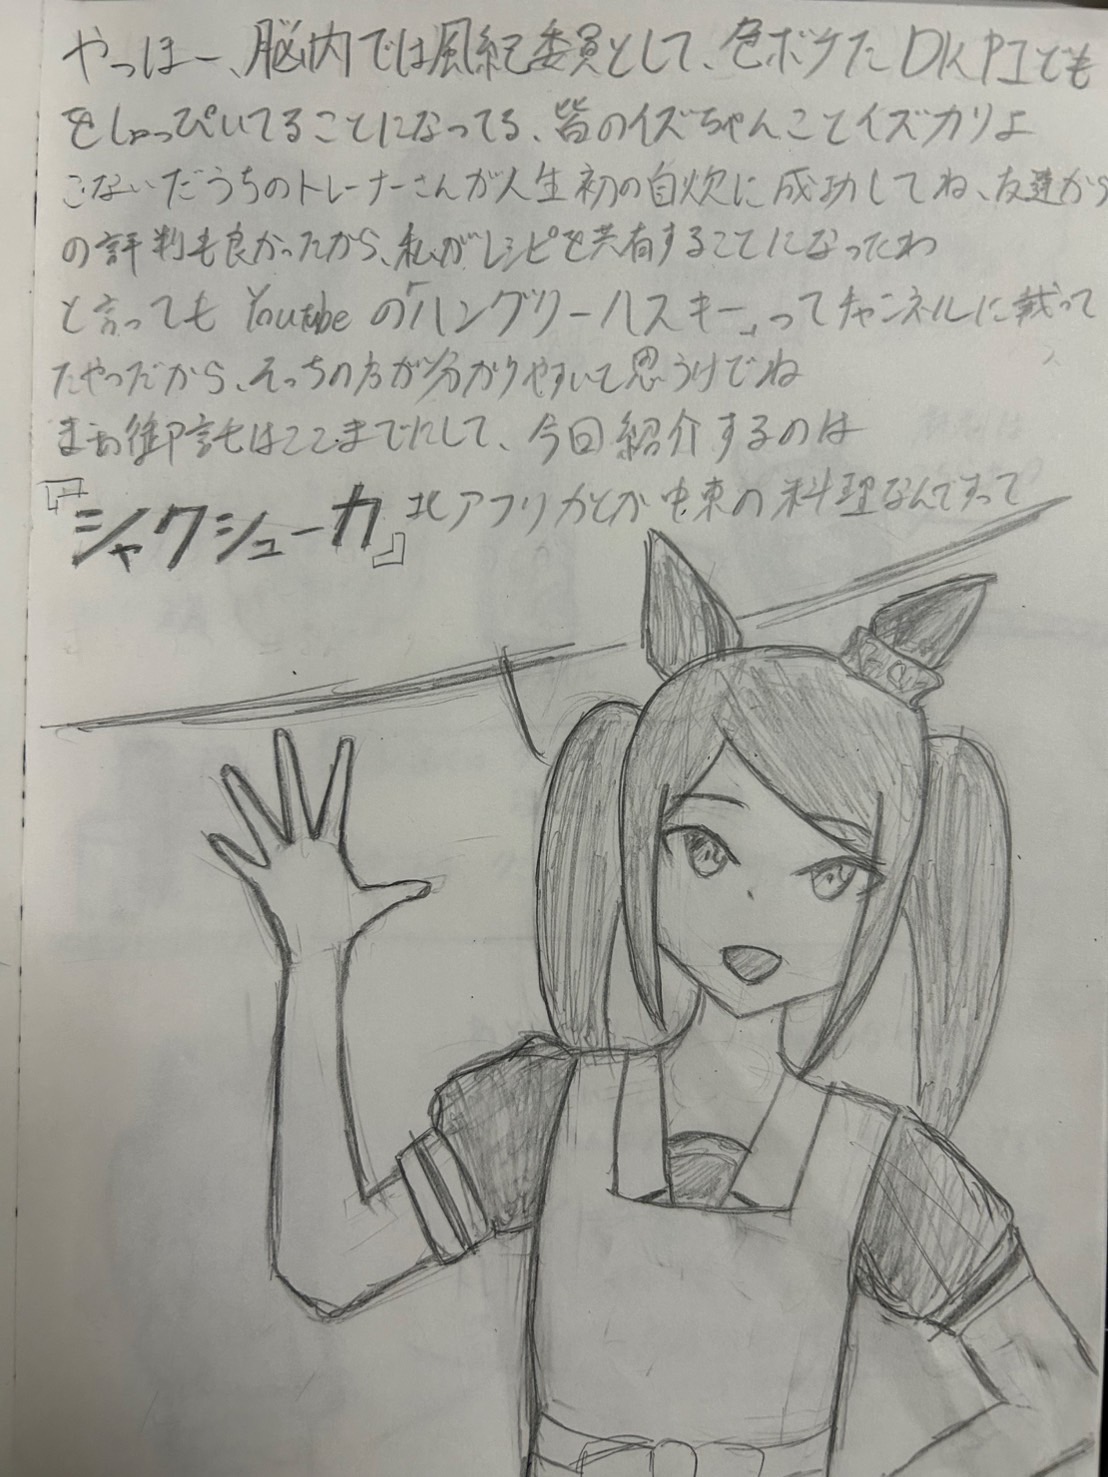 やっほー、脳内では風紀委員として、色ボケたDKPIども
をしょっぴいてることになってる、皆のイズちゃんことイズカリよ
こないだうちのトレーナーさんが人生初の自炊に成功してね、友達から
の評判も良かったから、私がレシピを共有することになったわ
と言ってもYoutubeの「ハングリーハスキー」ってチャンネルに載って
たやつだから、そっちの方が分かりやすいて思うけどね
まあ御託はここまでにして、今回紹介するのは
『シャクシューカ』北アフリカとか中東の料理なんですって